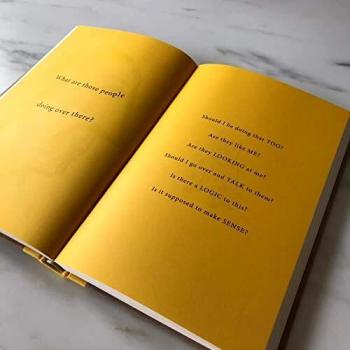 What are those people
doing over there?
Should I be doing that TOO?
Are they like ME?
Are they LOOKING at me?
Should I go over and TALK to them?
Is there a LOGIC to this?
Is it supposed to make SENSE?